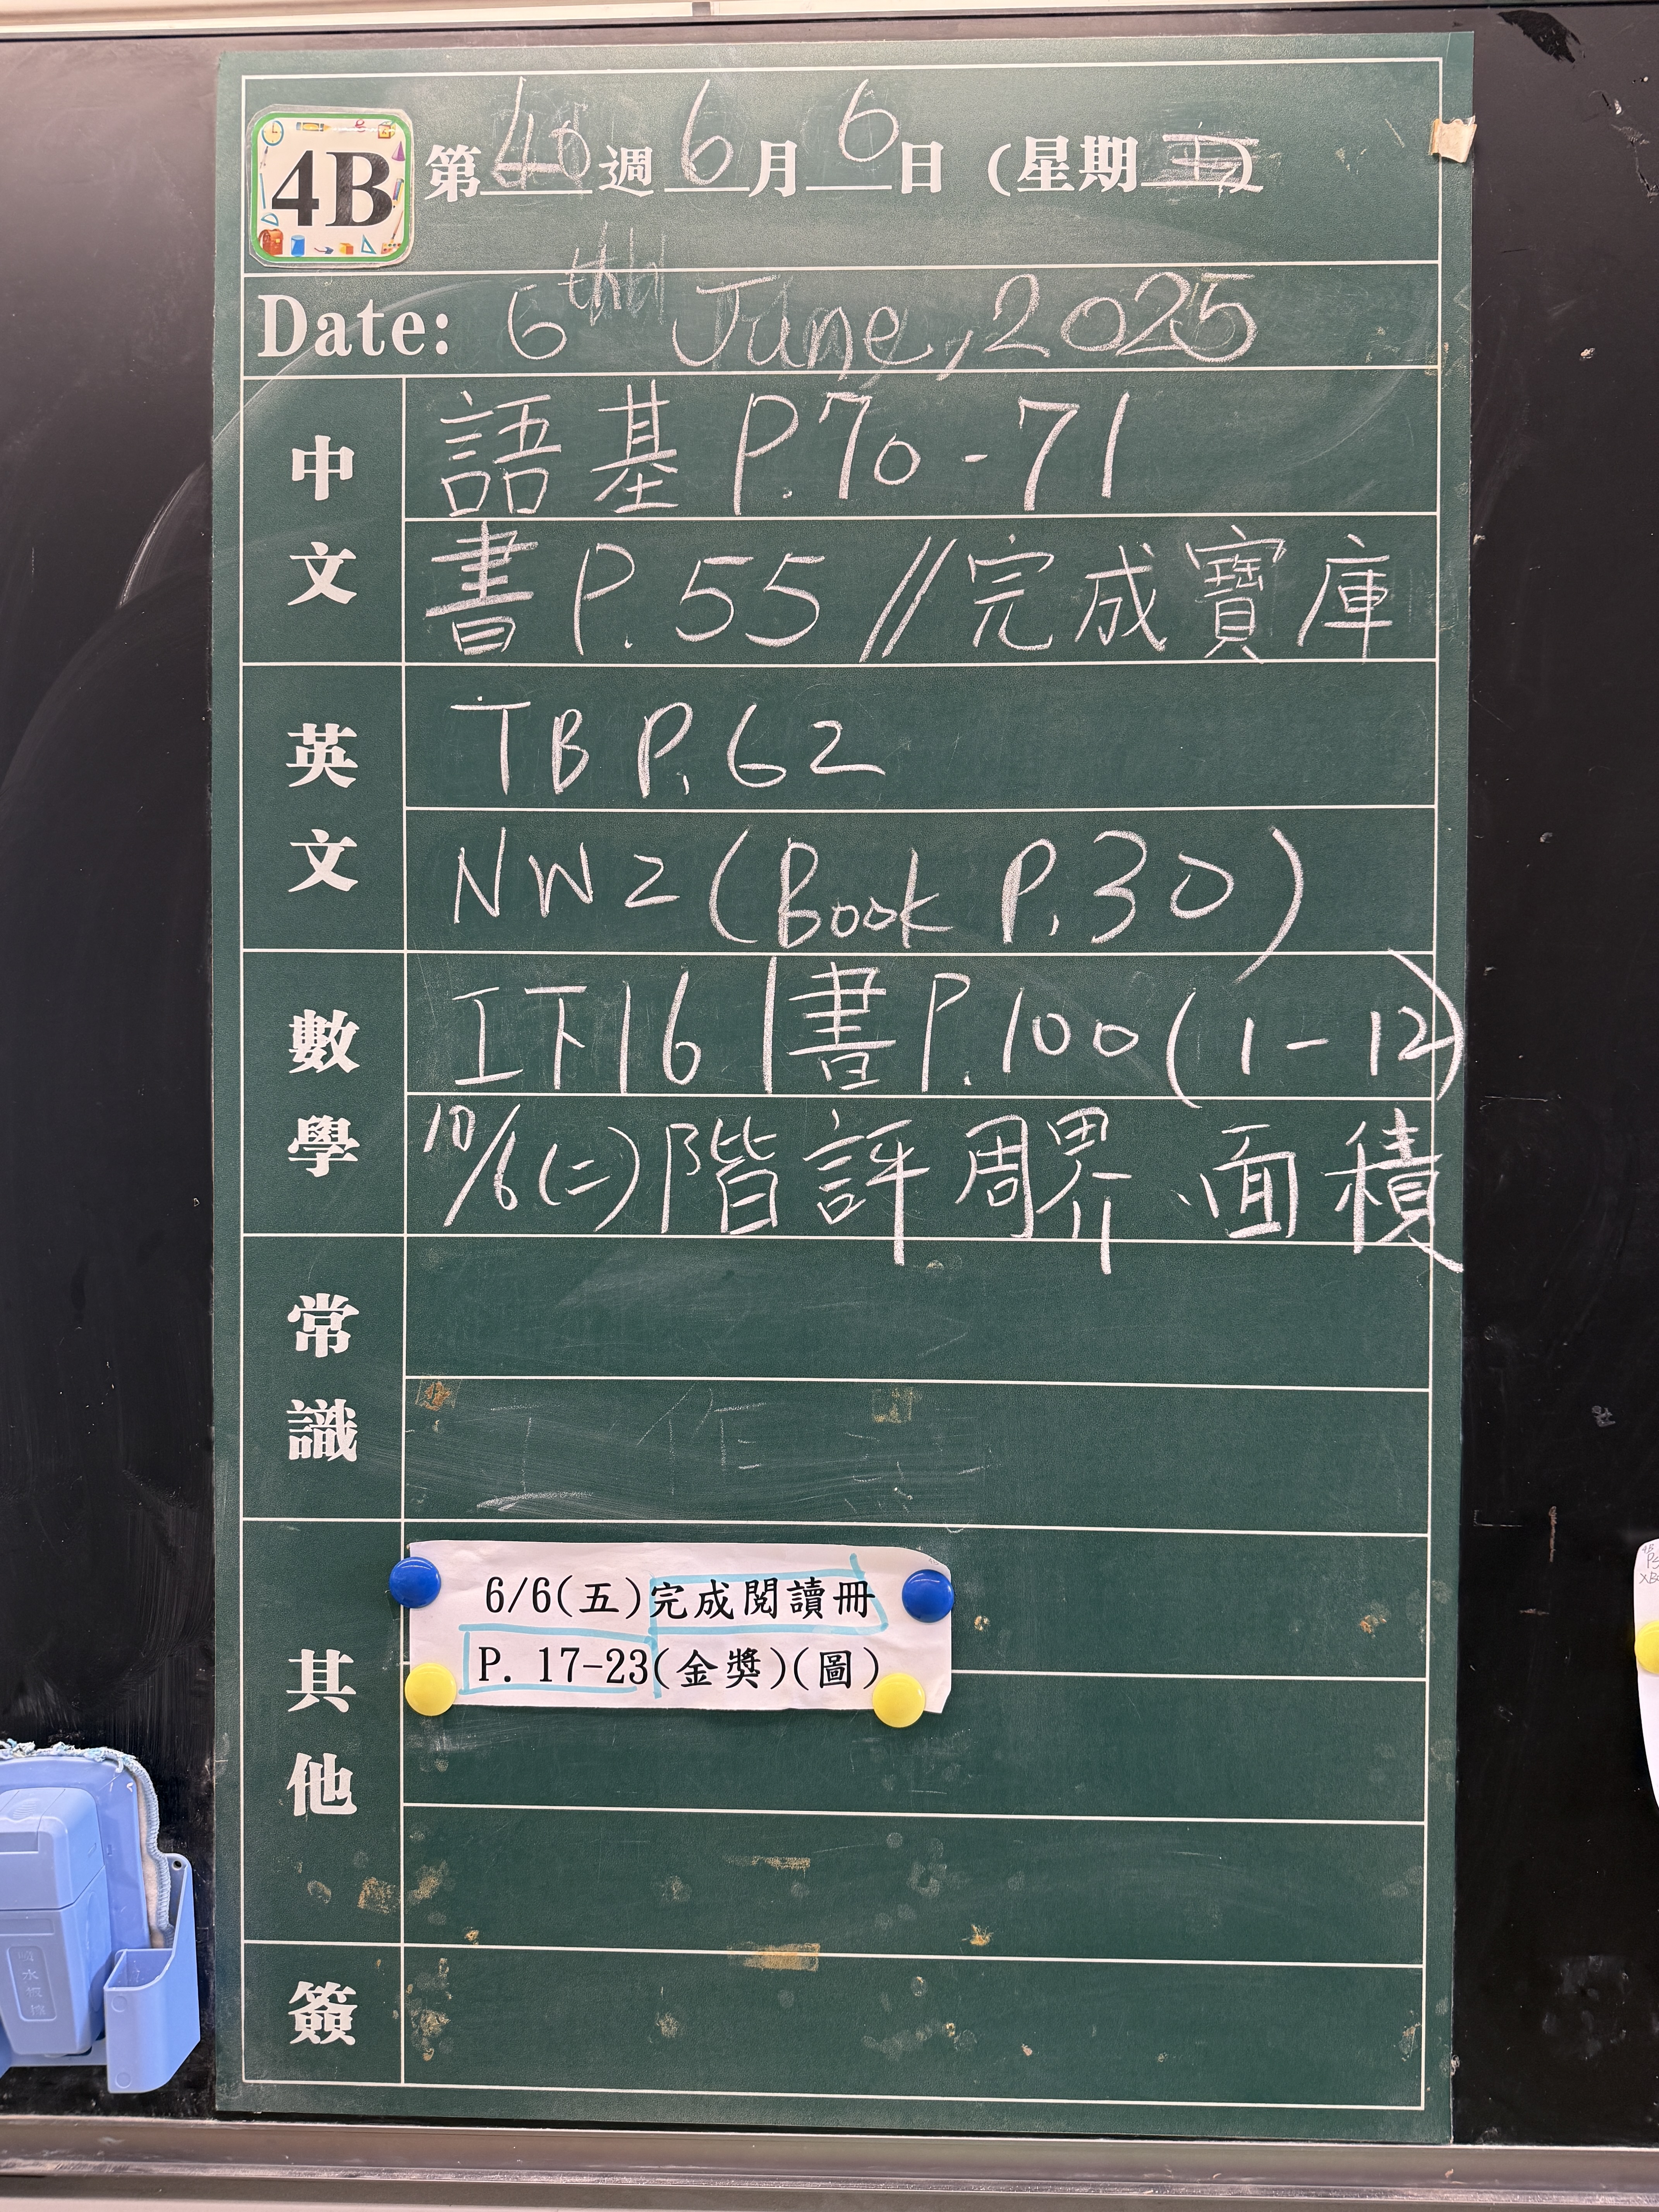 4B 第40週6月6日 (星期五)
Date: 6th June, 2025
中文
語基 P.70-71
書 P.55 // 完成寶庫
英文
TB P.62
NW2 (Book P.30)
數學
工下16 | 書 P.100 (1-12)
10/6(二) 階評 周界、面積
常識
其他
6/6(五)完成閱讀冊
P. 17-23(金獎)(圖)
簽